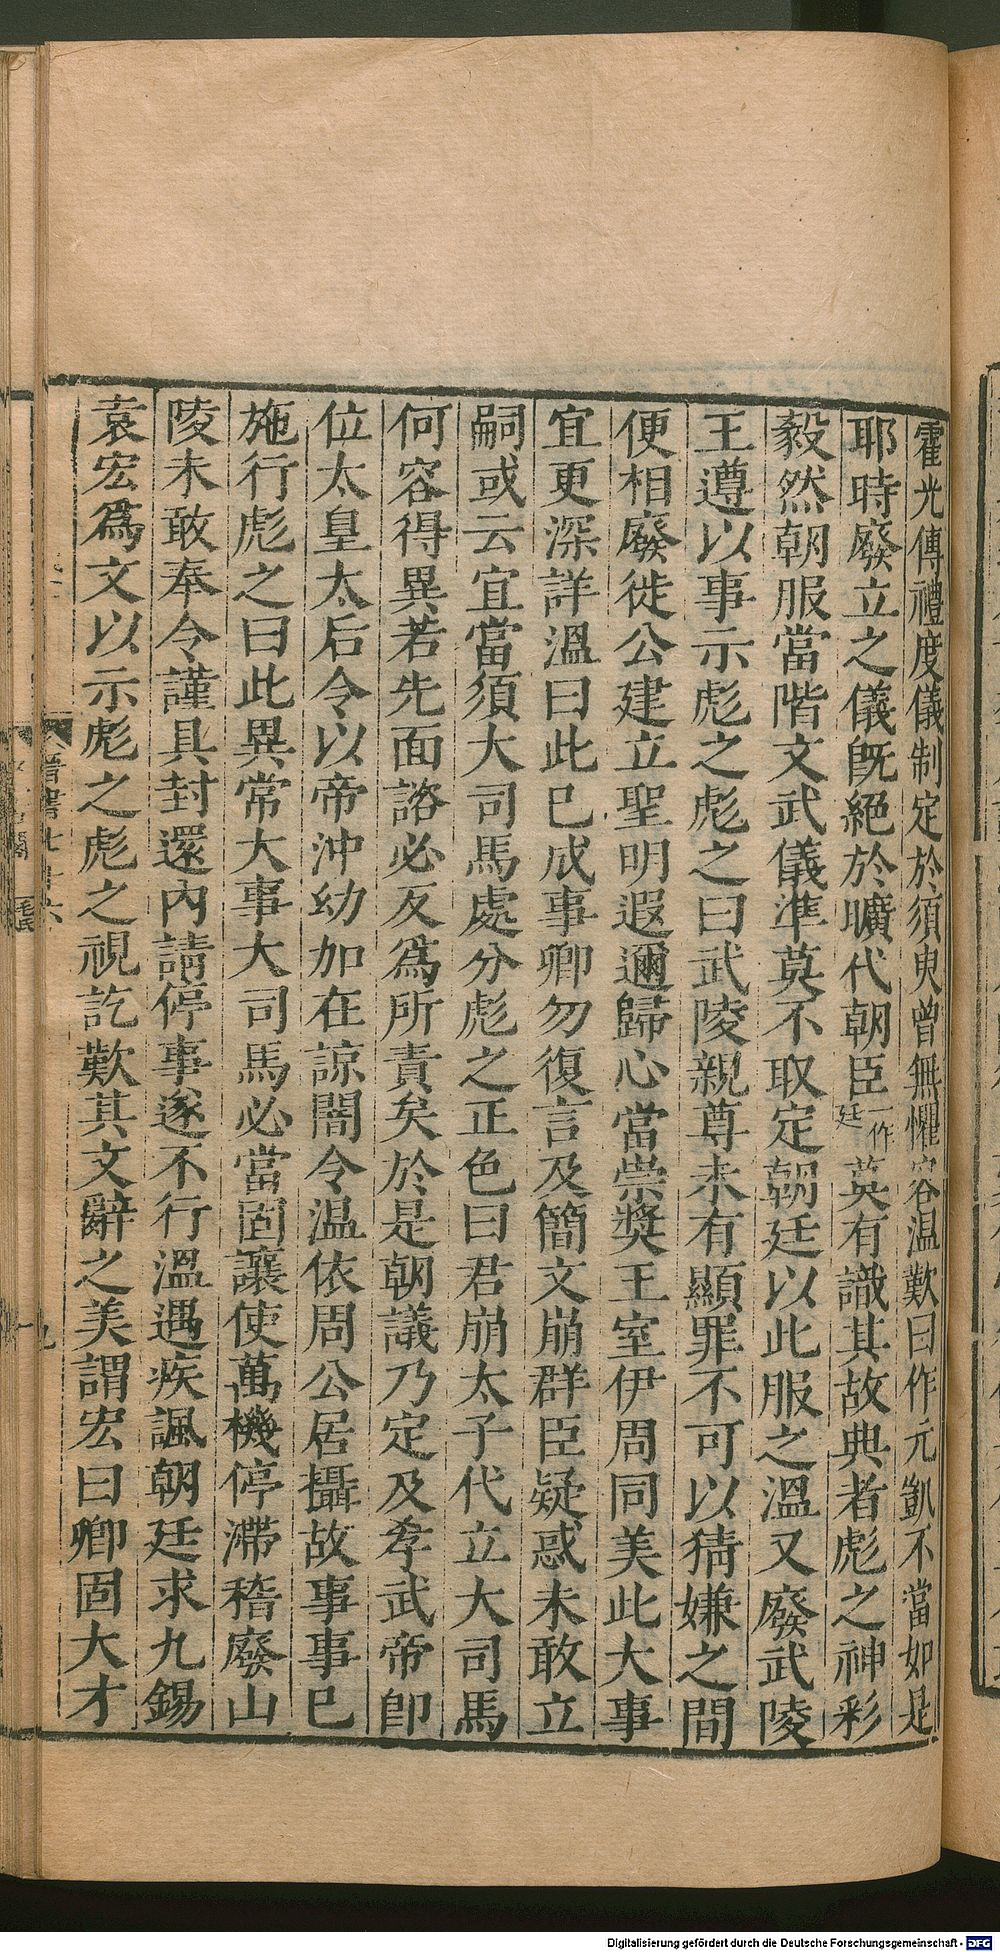 霍光傳禮度儀制定於須臾曾無懼容温歎曰作元凱不當如是
耶時廢立之儀既絕於曠代朝臣一作廷莫有識其故典者彪之神彩
毅然朝服當階文武儀準莫不取定朝廷以此服之溫又廢武陵
王遵以事示彪之彪之曰武陵親尊未有顯罪不可以猜嫌之間
便相廢徙公建立聖明遐邇歸心當崇獎王室伊周同美此大事
宜更深詳溫曰此已成事卿勿復言及簡文崩群臣疑惑未敢立
嗣或云宜當須大司馬處分彪之正色曰君崩太子代立大司馬
何容得異若先面諮必反爲所責矣於是朝議乃定及孝武帝卽
位太皇太后令以帝沖幼加在諒闇令温依周公居攝故事事已
施行彪之曰此異常大事大司馬必當固讓使萬機停滯稽廢山
陵未敢奉令謹具封還內請停事遂不行溫遇疾諷朝廷求九錫
袁宏爲文以示彪之彪之視訖歎其文辭之美謂宏曰卿固大才
晉書七十六
九
Digitalisierung gefördert durch die Deutsche Forschungsgemeinschaft - DFG